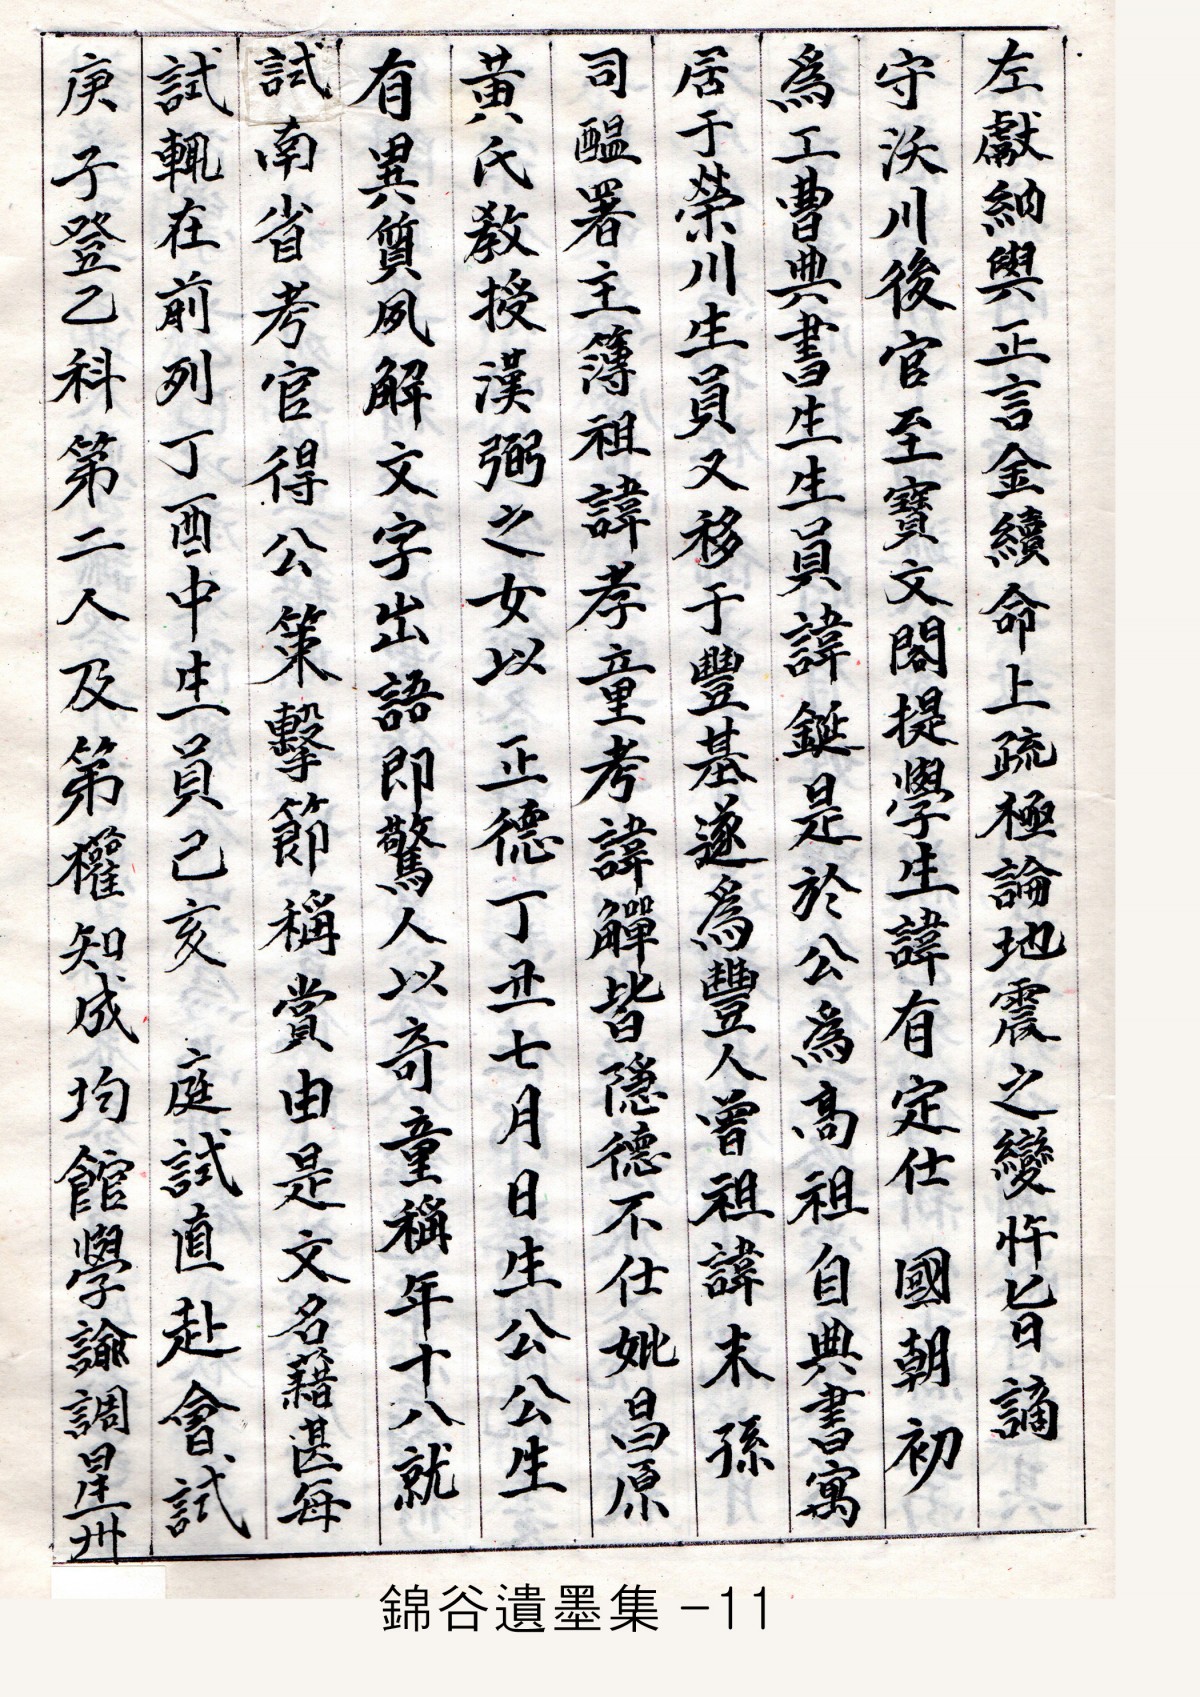 左獻納與正言金續命上疏極論地震之變忤匕旨謫
守沃川後官至寶文閣提學生諱有定仕 國朝初
爲工曹典書生生員諱鋋是於公爲高祖自典書寓
居于榮川生員又移于豐基遂爲豐人曾祖諱末孫
司醞署主簿祖諱孝童考諱觶皆隱德不仕妣昌原
黃氏教授漢弼之女以正德丁丑七月日生公公生
有異質夙解文字出語即驚人以奇童稱年十八就
試南省考官得公策擊節稱賞由是文名藉甚每
試輒在前列丁酉中生員己亥 庭試直赴會試
庚子登乙科第二人及第權知成均館學諭調星州
錦谷遺墨集 -11